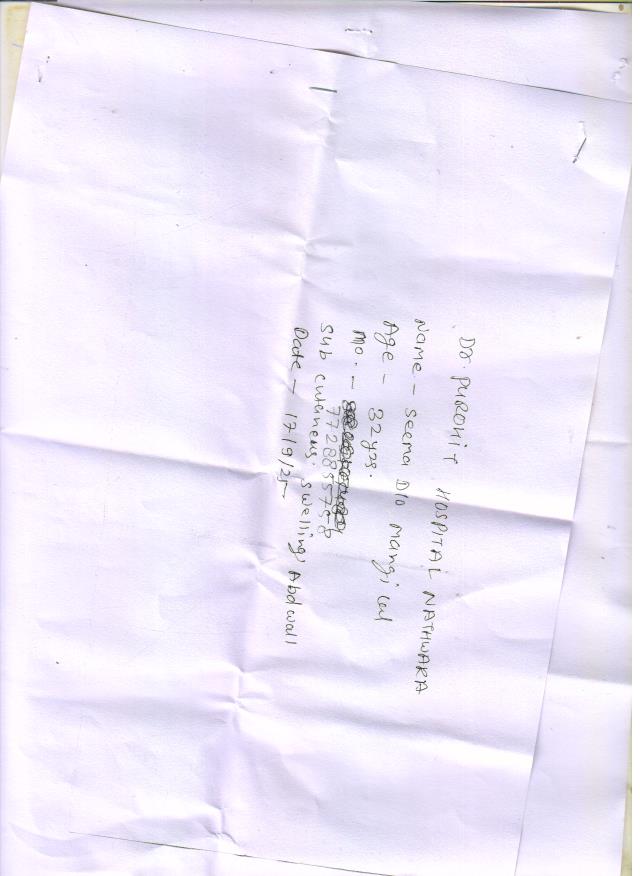 Dr. PUROHIT HOSPITAL NATHWARA
Name - Seema D/o Mangi Lal
Age - 32 yrs.
Mo. -
7728895758
Sub cutaneus. Swelling, Abd wall
Date - 17/9/25